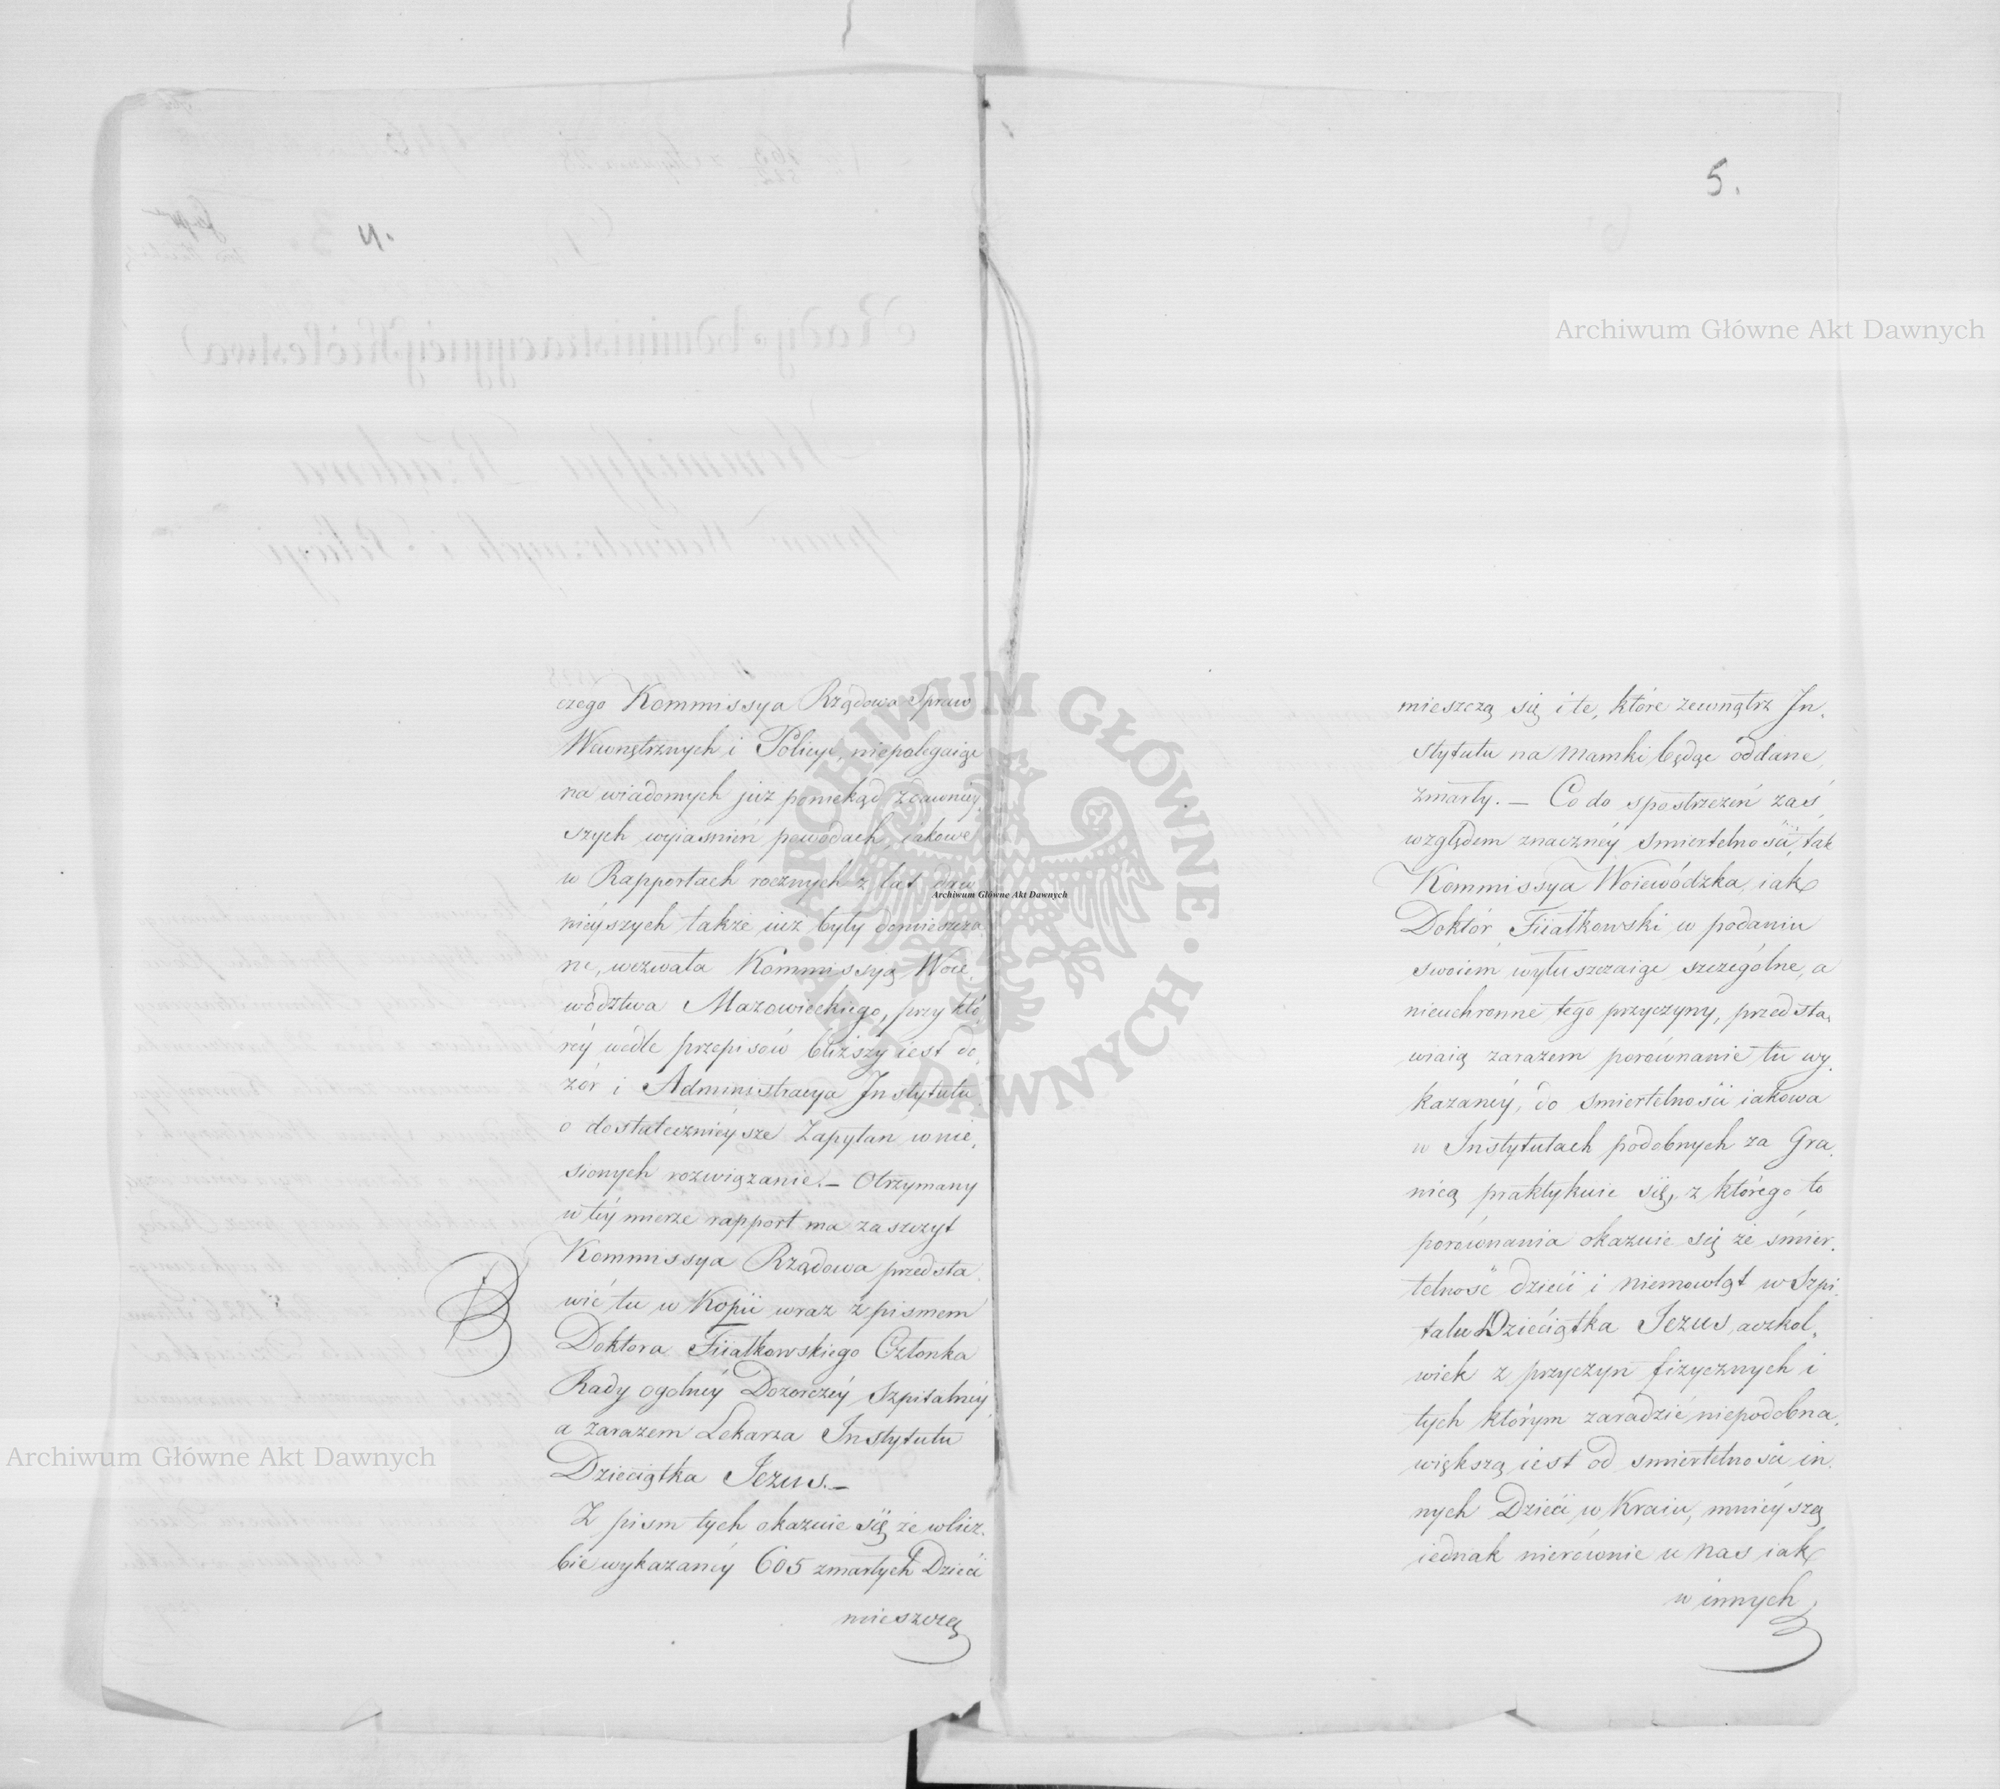 4.
czego Kommissya Rządowa Spraw
Wewnętrznych i Policyi, niepolegaiąc
na wiadomych już poniekąd zdawniey
szych wyiasnień powodach, iakowe
w Rapportach rocznych z lat daw
nieyszych także iuż były domieszcza
ne, wezwała Kommissyą Woie
wództwa Mazowieckiego, przy któ
réy wedle przepisów bliższy iest do
zór i Administracya Instytutu
o dostatecznieysze Zapytań wnie
sionych rozwiązanie. — Otrzymany
w téy mierze rapport ma zaszczyt
Kommissya Rządowa przedsta
wić tu w Kopii wraz z pismem
B
Doktora Fiiałkowskiego Członka
Rady ogolnéy Dozorczéy Szpitalnéy
a zarazem Lekarza Instytutu
Dzieciątka Jezus. —
Z pism tych okazuie się że wlicz
bie wykazanéy 605 zmarłych Dzieci
mieszczą
5.
mieszczą się i te, które zewnątrz In
stytutu na Mamki będąc oddane,
zmarły. — Co do spostrzeżeń zaś
względem znacznéy smiertelności, tak
Kommissya Woiewódzka, iak
Doktór Fiiałkowski w podaniu
swoiem wyłuszczaiąc szczególne, a
nieuchronne tego przyczyny, przedsta
wiaią zarazem porównanie tu wy
kazanéy, do smiertelności iakowa
w Instytutach podobnych za Gra
nicą praktykuie się, z którego to
porównania okazuie się że śmier
telność dzieci i niemowląt w Szpi
talu Dzieciątka Jezus, aczkol
wiek z przyczyn fizycznych i
tych którym zaradzić niepodobna,
większą iest od smiertelności in
nych Dzieci w Kraiu, mnieyszą
iednak nierównie u nas iak
w innych
Archiwum Główne Akt Dawnych
Archiwum Główne Akt Dawnych
Archiwum Główne Akt Dawnych
ARCHIWUM GŁÓWNE AKT DAWNYCH